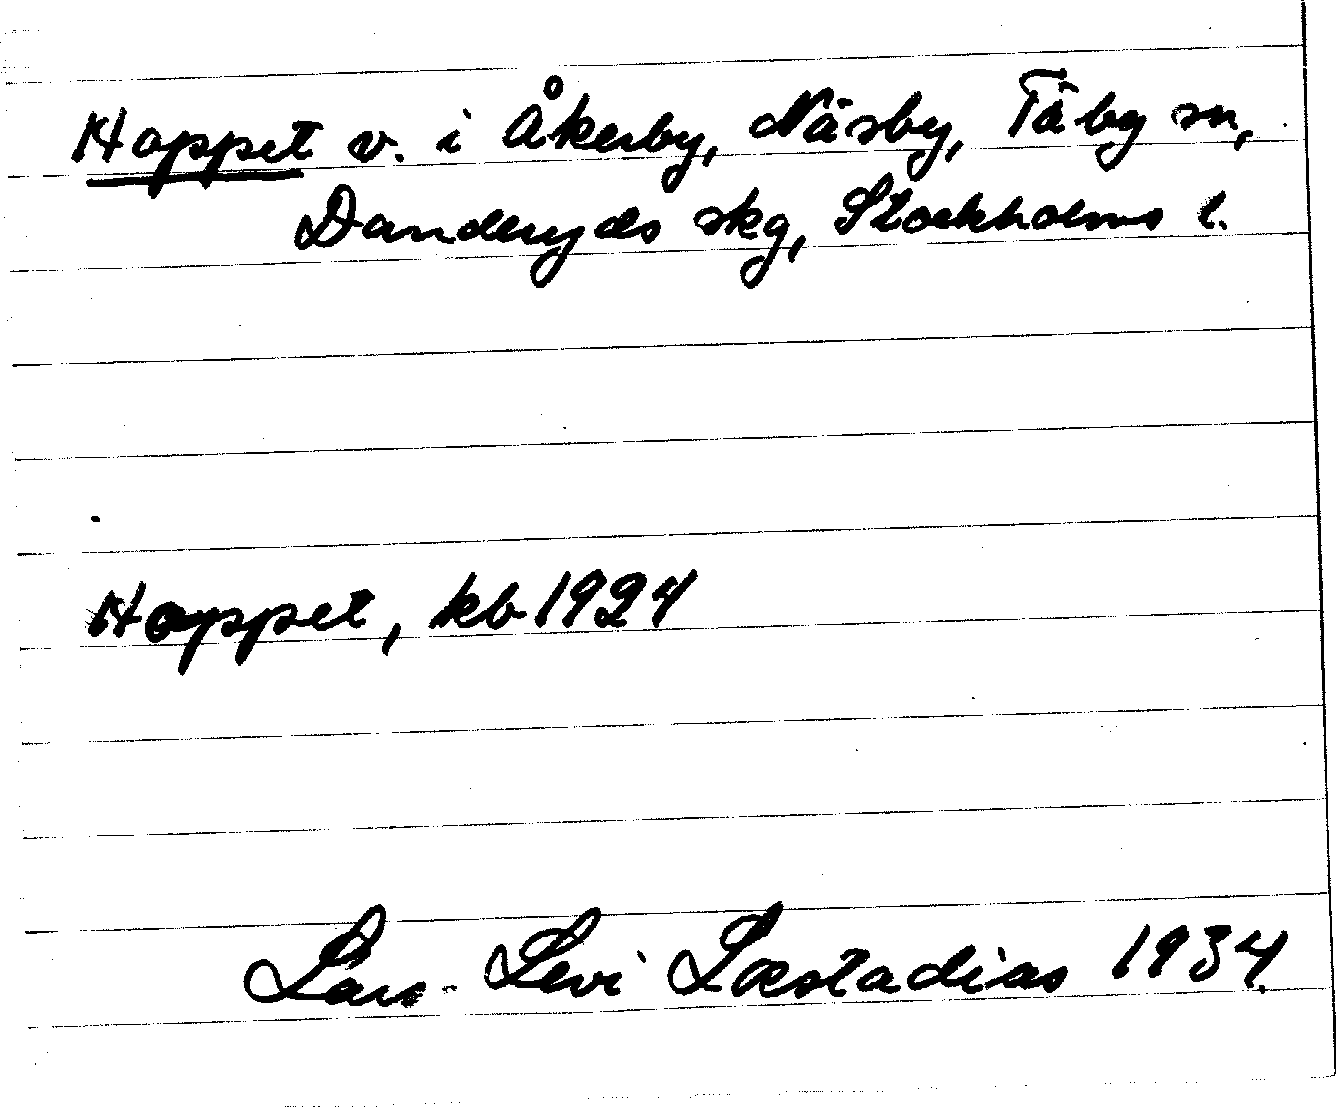 Hoppet v. i Åkerby, Näsby, Täby sn,
Danderyds skg, Stockholms l.
Hoppet, kb 1924
Lars-Levi Læstadius 1934.